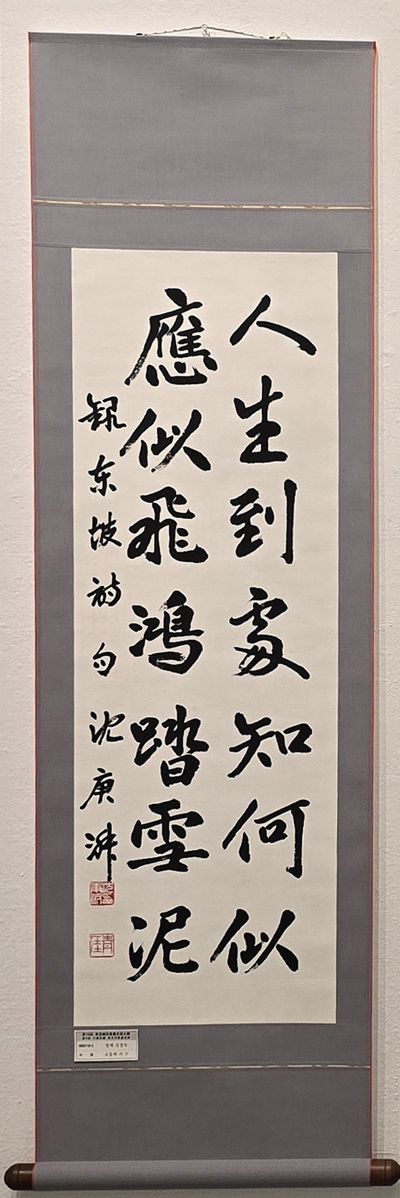 人生到處知何似
應似飛鴻踏雪泥
録东坡詩句 沈庚